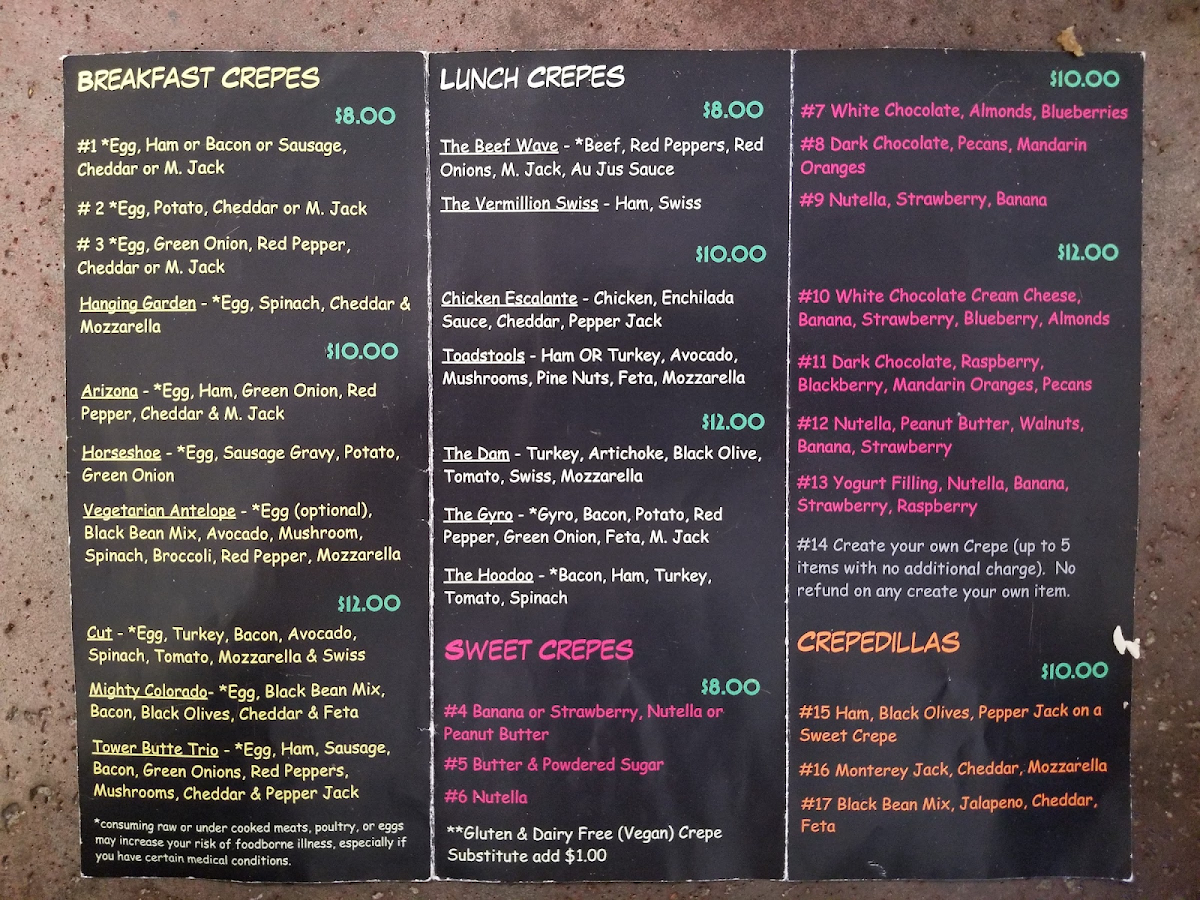 BREAKFAST CREPES
$8.00
#1 *Egg, Ham or Bacon or Sausage,
Cheddar or M. Jack
# 2 *Egg, Potato, Cheddar or M. Jack
# 3 *Egg, Green Onion, Red Pepper,
Cheddar or M. Jack
Hanging Garden - *Egg, Spinach, Cheddar &
Mozzarella
$10.00
Arizona - *Egg, Ham, Green Onion, Red
Pepper, Cheddar & M. Jack
Horseshoe - *Egg, Sausage Gravy, Potato,
Green Onion
Vegetarian Antelope - *Egg (optional),
Black Bean Mix, Avocado, Mushroom,
Spinach, Broccoli, Red Pepper, Mozzarella
$12.00
Cut - *Egg, Turkey, Bacon, Avocado,
Spinach, Tomato, Mozzarella & Swiss
Mighty Colorado- *Egg, Black Bean Mix,
Bacon, Black Olives, Cheddar & Feta
Tower Butte Trio - *Egg, Ham, Sausage,
Bacon, Green Onions, Red Peppers,
Mushrooms, Cheddar & Pepper Jack
*consuming raw or under cooked meats, poultry, or eggs
may increase your risk of foodborne illness, especially if
you have certain medical conditions.
LUNCH CREPES
$8.00
The Beef Wave - *Beef, Red Peppers, Red
Onions, M. Jack, Au Jus Sauce
The Vermillion Swiss - Ham, Swiss
$10.00
Chicken Escalante - Chicken, Enchilada
Sauce, Cheddar, Pepper Jack
Toadstools - Ham OR Turkey, Avocado,
Mushrooms, Pine Nuts, Feta, Mozzarella
$12.00
The Dam - Turkey, Artichoke, Black Olive,
Tomato, Swiss, Mozzarella
The Gyro - *Gyro, Bacon, Potato, Red
Pepper, Green Onion, Feta, M. Jack
The Hoodoo - *Bacon, Ham, Turkey,
Tomato, Spinach
SWEET CREPES
$8.00
#4 Banana or Strawberry, Nutella or
Peanut Butter
#5 Butter & Powdered Sugar
#6 Nutella
**Gluten & Dairy Free (Vegan) Crepe
Substitute add $1.00
$10.00
#7 White Chocolate, Almonds, Blueberries
#8 Dark Chocolate, Pecans, Mandarin
Oranges
#9 Nutella, Strawberry, Banana
$12.00
#10 White Chocolate Cream Cheese,
Banana, Strawberry, Blueberry, Almonds
#11 Dark Chocolate, Raspberry,
Blackberry, Mandarin Oranges, Pecans
#12 Nutella, Peanut Butter, Walnuts,
Banana, Strawberry
#13 Yogurt Filling, Nutella, Banana,
Strawberry, Raspberry
#14 Create your own Crepe (up to 5
items with no additional charge). No
refund on any create your own item.
CREPEDILLAS
$10.00
#15 Ham, Black Olives, Pepper Jack on a
Sweet Crepe
#16 Monterey Jack, Cheddar, Mozzarella
#17 Black Bean Mix, Jalapeno, Cheddar,
Feta